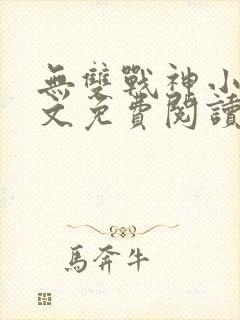 無雙戰神小
文免費閱讀
馬奔牛